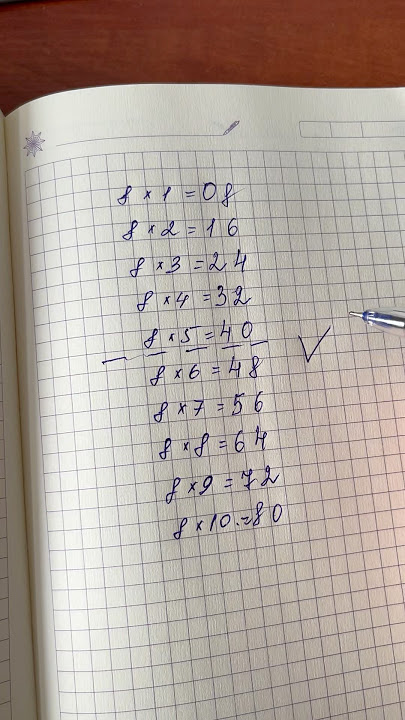 8 × 1 = 08
8 × 2 = 16
8 × 3 = 24
8 × 4 = 32
8 × 5 = 40
8 × 6 = 48
8 × 7 = 56
8 × 8 = 64
8 × 9 = 72
8 × 10 = 80